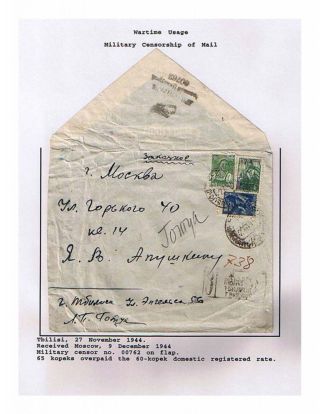 Wartime Usage
Military Censorship of Mail
Заказное
г. Москва
Ул. Горького 40
кв. 14
Я. В. Апушкину
г. Тбилиси
Tbilisi, 27 November 1944.
Received Moscow, 9 December 1944
Military censor no. 00762 on flap.
65 kopeks overpaid the 60-kopek domestic registered rate.